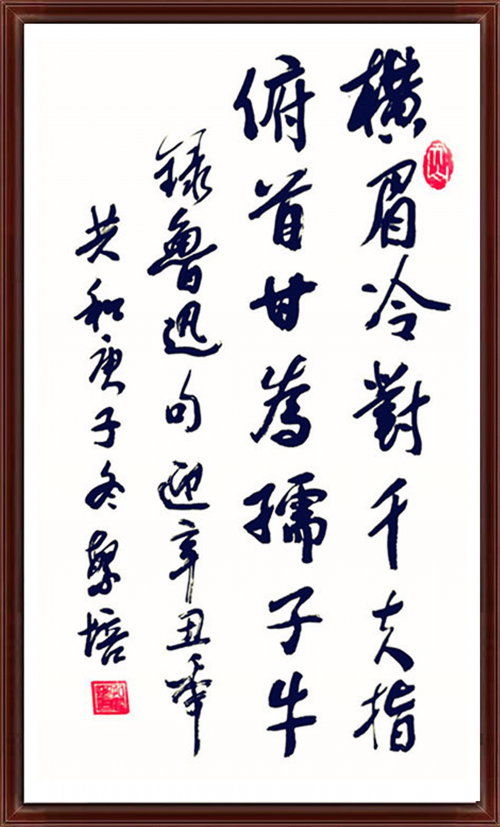 橫眉冷對千夫指
俯首甘爲孺子牛
録魯迅句迎辛丑年
共和庚子冬黎培